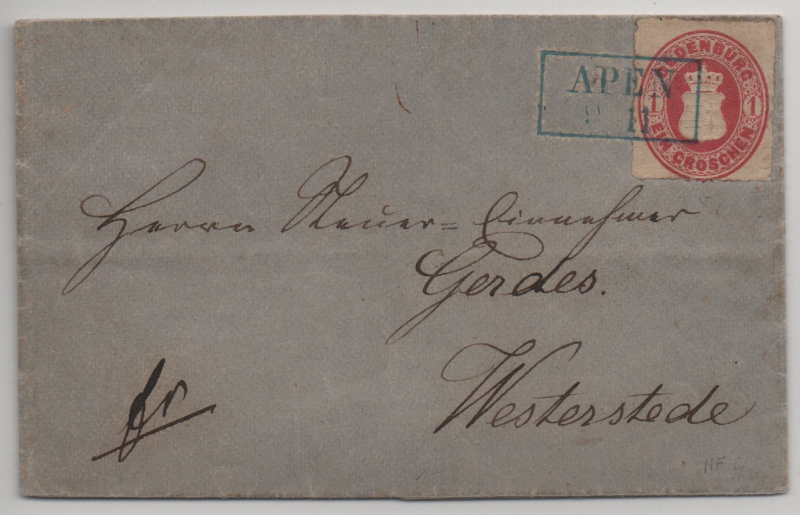 APEN
11
OLDENBURG
1 1
EIN GROSCHEN
Herrn Steuer=Einnehmer
Gerdes.
Westerstede
fr